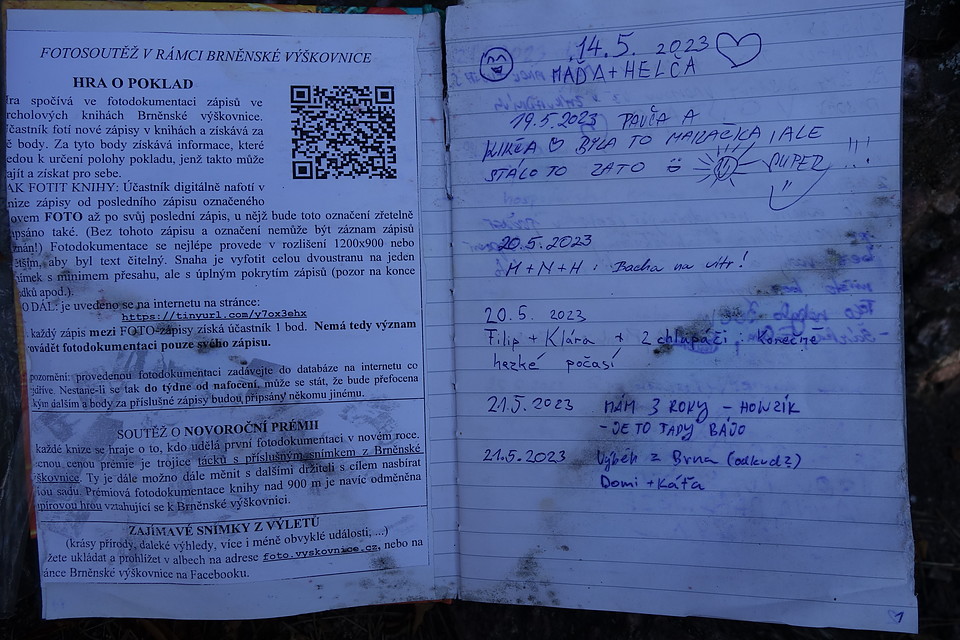 FOTOSOUTĚŽ V RÁMCI BRNĚNSKÉ VÝŠKOVNICE
HRA O POKLAD
Hra spočívá ve fotodokumentaci zápisů ve
rcholových knihách Brněnské výškovnice.
častník fotí nové zápisy v knihách a získává za
ě body. Za tyto body získává informace, které
edou k určení polohy pokladu, jenž takto může
ajít a získat pro sebe.
AK FOTIT KNIHY: Účastník digitálně nafotí v
nize zápisy od posledního zápisu označeného
ovem FOTO až po svůj poslední zápis, u nějž bude toto označení zřetelně
apsáno také. (Bez tohoto zápisu a označení nemůže být záznam zápisů
znán!) Fotodokumentace se nejlépe provede v rozlišení 1200x900 nebo
ětším, aby byl text čitelný. Snaha je vyfotit celou dvoustranu na jeden
nímek s minimem přesahu, ale s úplným pokrytím zápisů (pozor na konce
dků apod.).
O DÁL: je uvedeno se na internetu na stránce:
https://tinyurl.com/y7ox3ehx
každý zápis mezi FOTO-zápisy získá účastník 1 bod. Nemá tedy význam
ovádět fotodokumentaci pouze svého zápisu.
pozornění: provedenou fotodokumentaci zadávejte do databáze na internetu co
jdříve. Nestane-li se tak do týdne od nafocení, může se stát, že bude přefocena
kým dalším a body za příslušné zápisy budou připsány někomu jinému.
SOUTĚŽ O NOVOROČNÍ PRÉMII
každé knize se hraje o to, kdo udělá první fotodokumentaci v novém roce.
cenou cenou prémie je trojice tácků s příslušným snímkem z Brněnské
škovnice. Ty je dále možno dále měnit s dalšími držiteli s cílem nasbírat
ou sadu. Prémiová fotodokumentace knihy nad 900 m je navíc odměněna
apírovou hrou vztahující se k Brněnské výškovnici.
ZAJÍMAVÉ SNÍMKY Z VÝLETŮ
(krásy přírody, daleké výhledy, více i méně obvyklé události, ...)
žete ukládat a prohlížet v albech na adrese foto.vyskovnice.cz, nebo na
ránce Brněnské výškovnice na Facebooku.
14.5. 2023
MÁĎA + HELČA
19.5.2023 PAVČA A
KLIKČA BYLA TO MAKAČKA, ALE
STÁLO TO ZATO SUPER !!!
20.5.2023
M+N+H : Bacha na vítr!
20.5. 2023
Filip + Klára + 2 chlupáči. Konečně
hezké počasí
21.5.2023 MÁM 3 ROKY - HONZÍK
- JE TO TADY BÁJO
21.5.2023 Výběh z Brna (odkud?)
Domi + Káťa